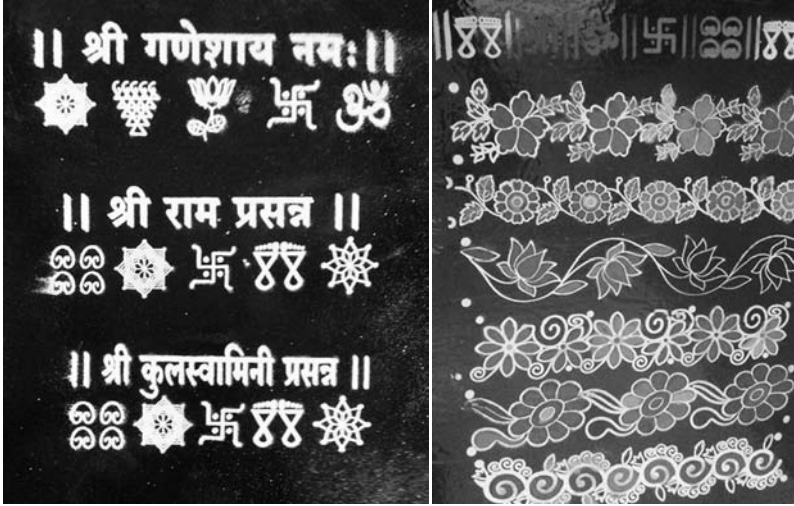 || श्री गणेशाय नमः ||
ॐ
|| श्री राम प्रसन्न ||
|| श्री कुलस्वामिनी प्रसन्न ||